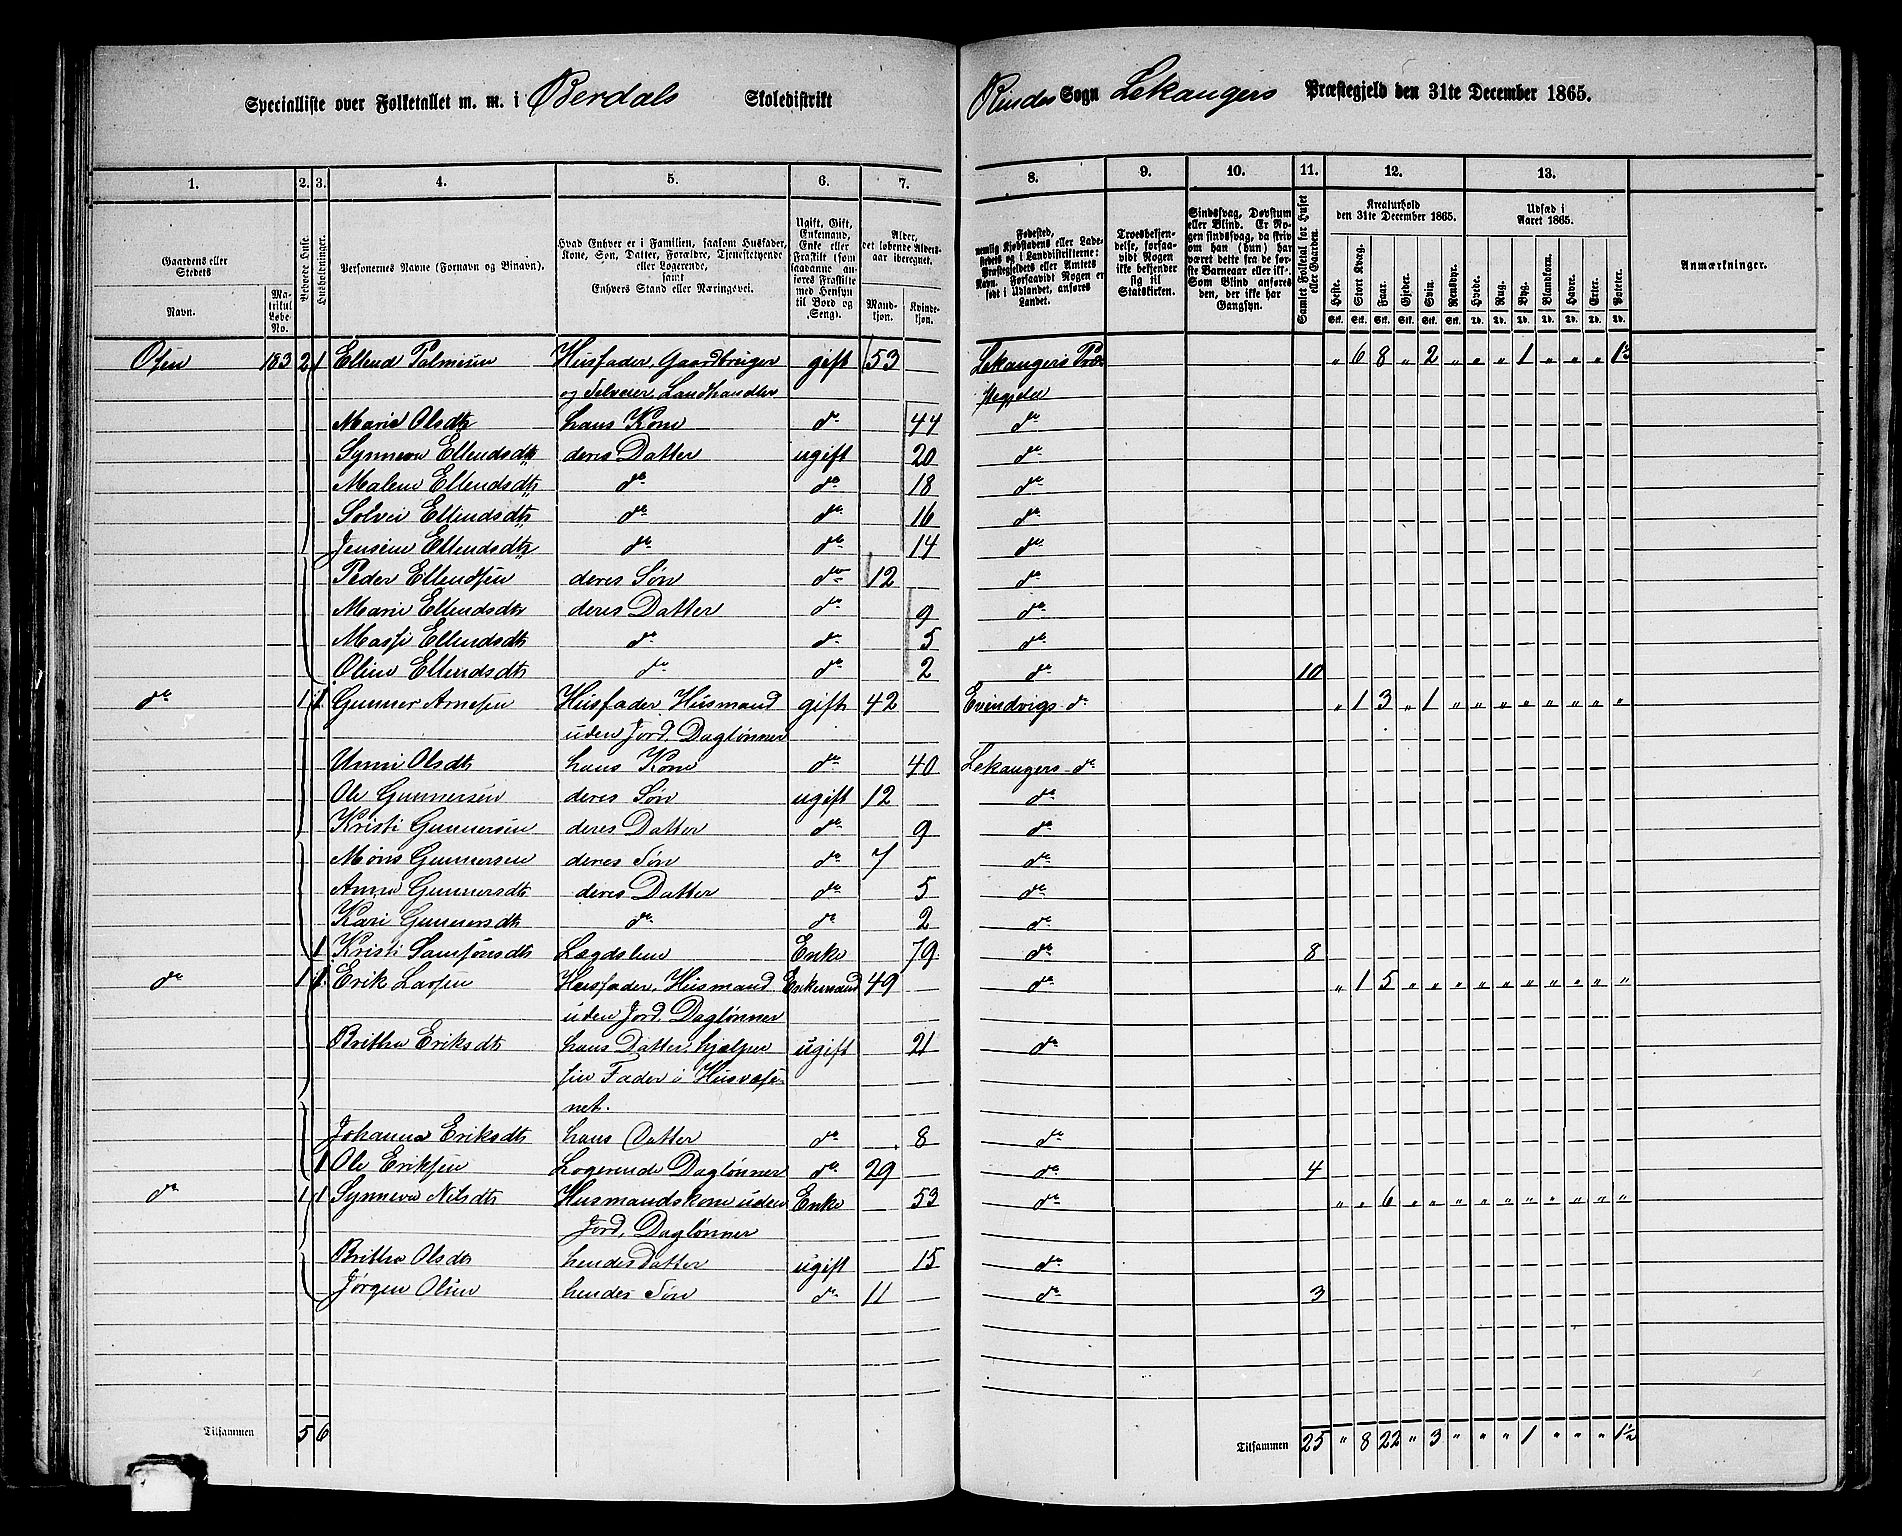 Specialliste over Folketallet m. m. i Berdals Skoledistrikt Rinde Sogn Lekangers Præstegjeld den 31te December 1865.
1. 2. 3. 4. 5. 6. 7. 8. 9. 10. 11. 12. 13.
Gaardens eller Stedets
Navn.
Matrikul Løbe-No.
Beboede Huse.
Husholdninger.
Personernes Navne (Fornavn og Binavn).
Hvad Enhver er i Familien, saasom Husfader,
Kone, Søn, Datter, Forældre, Tjenestetyende
eller Logerende,
samt
Enhvers Stand eller Næringsvei.
Ugift, Gift,
Enkemand,
Enke eller
Fraskilt (som
saadanne anføres
Fraskilte
med Hensyn
til Bord og
Seng).
Alder,
det løbende Alders-
aar iberegnet.
Mandkjøn.
Kvindekjøn.
Fødested,
nemlig Kjøbstadens eller Lade-
stedets og i Landdistrikterne:
Præstegjeldets eller Amtets
Navn. Forsaavidt Nogen er
født i Udlandet, anføres
Landet.
Troesbekjen-
delse, forsaa-
vidt Nogen
ikke bekjender
sig til
Statskirken.
Sindssvag, Døvstum
eller Blind. Er No-
gen sindssvag, da hvi-
om han (hun) har
været dette fra de før-
ste Barneaar eller ikke.
Som Blind anføres
den, der ikke har
Gangsyn.
Samlet Folketal for Huset eller Gaarden.
Kreaturhold
den 31te December 1865.
Heste. Stort Kvæg. Faar. Gjeder. Svin. Rensdyr.
Udsæd i
Aaret 1865.
Hvede. Rug. Byg. Blandkorn. Havre. Erter. Poteter.
Anmærkninger.
Osen 183 2 1 Ellend Palmesen Husfader, Gaardbruger gift 53 Lekangers Præ- " 6 8 " 2 " " " 1 " " " 1½
og Selveier, Landhandler stegjeld
Marie Olsdtr hans Kone do 44 do
Synneva Ellendsdtr deres Datter ugift 20 do
Malene Ellendsdtr do do 18 do
Solvei Ellendsdtr do do 16 do
Jensine Ellendsdtr do do 14 do
Peder Ellendsen deres Søn do 12 do
Marie Ellendsdtr deres Datter do 9 do
Massi Ellendsdtr do do 5 do
Oline Ellendsdtr do do 2 do 10
do 1 1 Gunner Arnesen Husfader, Husmand gift 42 Evindvigs do " 1 3 " 1 " " " " " " " "
uden Jord, Daglønner
Unni Olsdtr hans Kone do 40 Lekangers do
Ole Gunnersen deres Søn ugift 12 do
Kristi Gunnersen deres Datter do 9 do
Møns Gunnersen deres Søn do 7 do
Anna Gunnersdtr deres Datter do 5 do
Kari Gunnersdtr do do 2 do
1 Kristi Samsonsdtr Lægdslem Enke 79 do 8
do 1 1 Erik Larsen Husfader, Husmand Enkemand 49 do " 1 5 " " " " " " " " " "
uden Jord, Daglønner
Britha Eriksdtr hans Datter, hjælper ugift 21 do
sin Fader i Husvæse-
net.
Johanna Eriksdtr hans Datter do 8 do
1 Ole Eriksen Logerende Daglønner do 29 do 4
do 1 1 Synneva Nilsdtr Husmandskone uden Enke 53 do " " 6 " " " " " " " " " "
Jord, Daglønner
Britha Olsdtr hendes Datter ugift 15 do
Jørgen Olsen hendes Søn do 11 do 3
Tilsammen 5 6 Tilsammen 25 " 8 22 " 3 " " " 1 " " " 1½